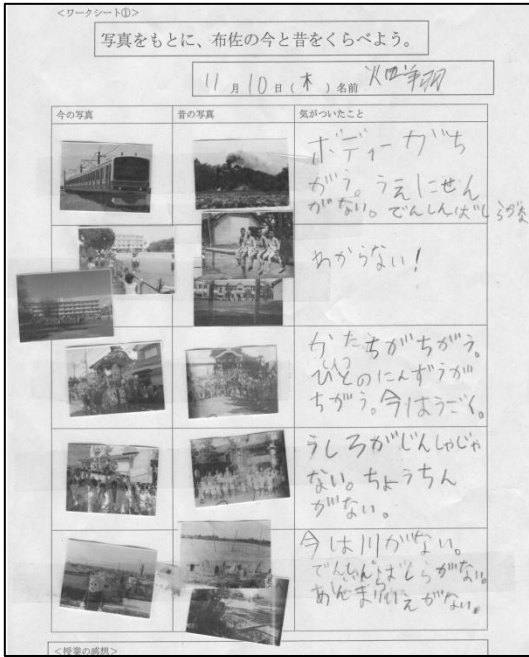 <ワークシート①>
写真をもとに、布佐の今と昔をくらべよう。
11月10日(木) 名前
今の写真 昔の写真 気がついたこと
ボディーがち
がう。うえにせん
がない。でんしんばしらがな
わからない!
かたちがちがう。
ひとのにんずうが
ちがう。今はうごく。
うしろがじんじゃじゃ
ない。ちょうちん
がない。
今は川がない。
でんしんばしらがない。
あんまりいえがない。
<授業の感想>